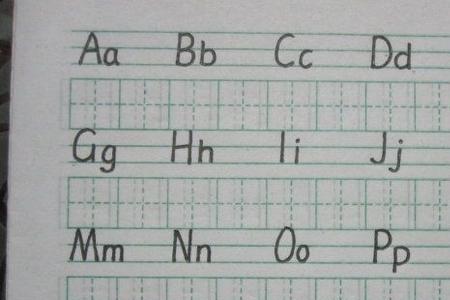 Aa Bb Cc Dd
Gg Hh Ii Jj
Mm Nn Oo Pp